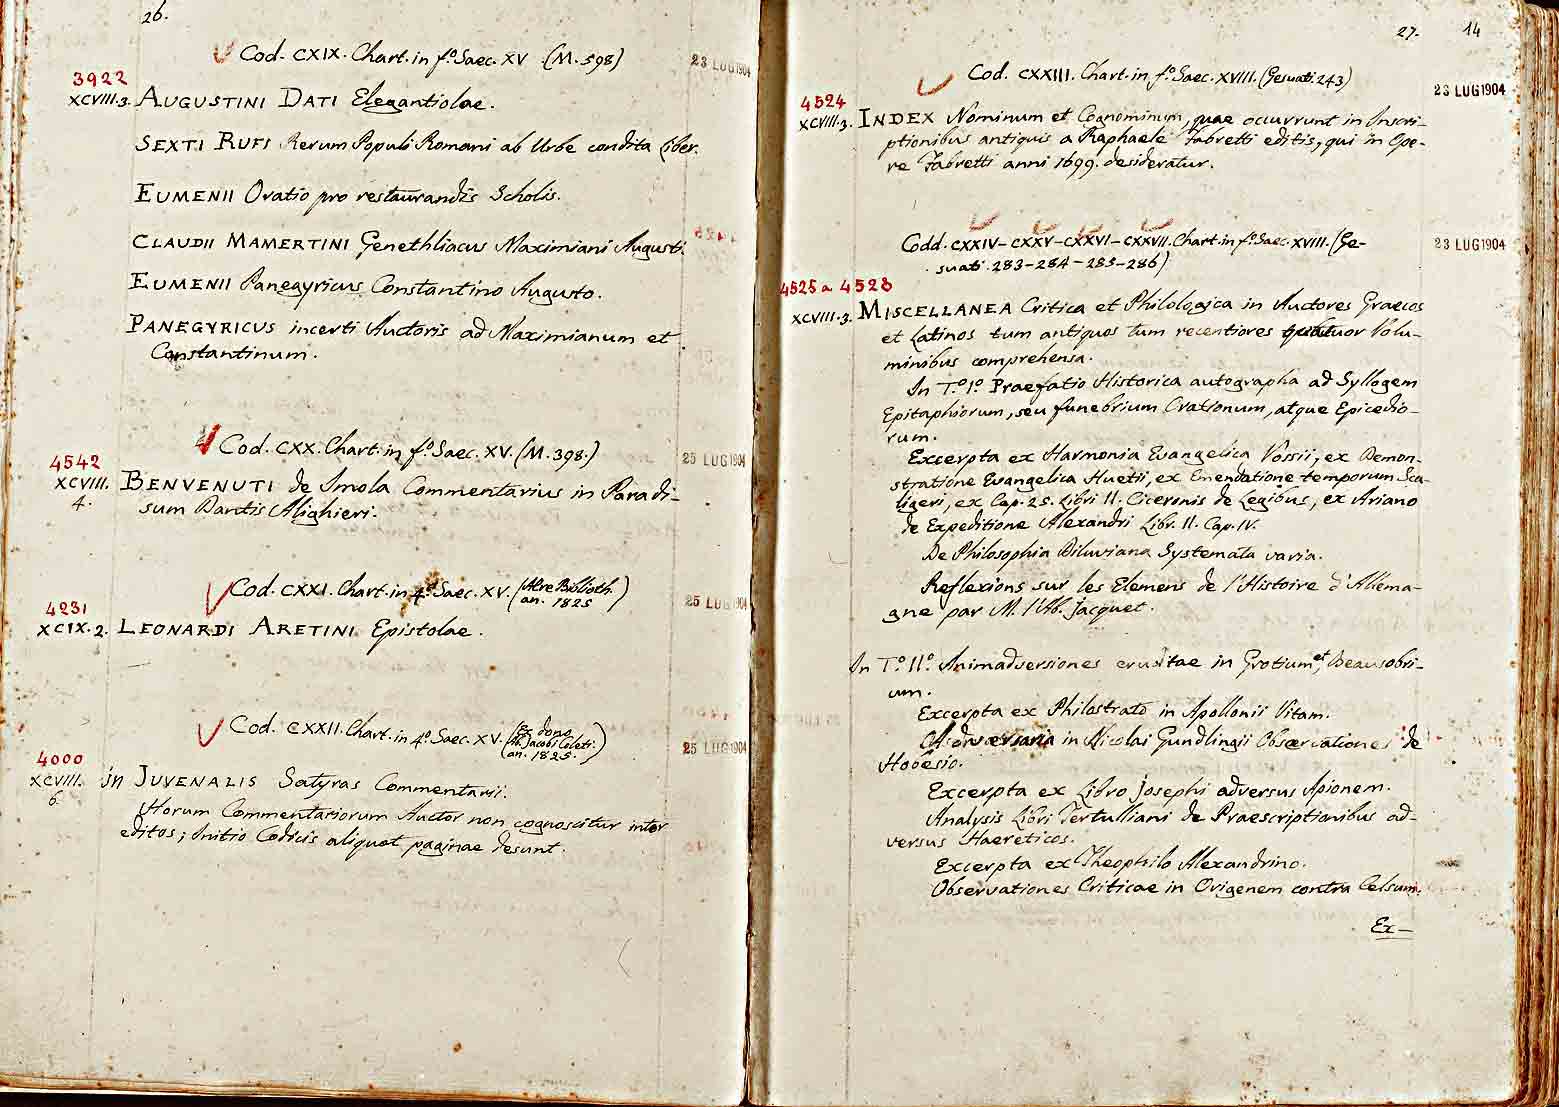 26.
Cod. CXIX. Chart. in fº. Saec. XV. (M. 598)
23 LUG 1904
3922
XCVIII. 3. AUGUSTINI DATI Elegantiolae.
SEXTI RUFI Rerum Populi Romani ab Urbe condita Liber.
EUMENII Oratio pro restaurandis Scholis.
CLAUDII MAMERTINI Genethliacus Maximiani Augusti.
EUMENII Panegyricus Constantino Augusto.
PANEGYRICUS incerti Auctoris ad Maximianum et
Constantinum.
Cod. CXX. Chart. in fº. Saec. XV. (M. 398.)
25 LUG 1904
4542
XCVIII. BENVENUTI de Imola Commentarius in Paradi-
4. sum Dantis Alighieri.
Cod. CXXI. Chart. in 4º. Saec. XV. (Alre Biblioth.
an. 1825)
25 LUG 1904
4231
XCIX. 2. LEONARDI ARETINI Epistolae.
Cod. CXXII. Chart. in 4º. Saec. XV. (Ex dono
Ab. Jacobi Coleti.
an. 1825.)
25 LUG 1904
4000
XCVIII. in JUVENALIS Satyras Commentarii.
6. Horum Commentariorum Auctor non cognoscitur inter
editos; Initio Codicis aliquot paginae desunt.
27. 14
Cod. CXXIII. Chart. in fº. Saec. XVIII. (Gesuati. 243)
23 LUG 1904
4524
XCVIII. 3. INDEX Nominum et Cognominum, quae occurrunt in Inscri-
ptionibus antiquis a Raphaele Fabretti editis, qui in Ope-
re Fabretti anni 1699. desideratur.
Codd. CXXIV - CXXV - CXXVI - CXXVII. Chart. in fº. Saec. XVIII. (Ge-
suati. 283 - 284 - 285 - 286)
23 LUG 1904
4525 a 4528
XCVIII. 3. MISCELLANEA Critica et Philologica in Auctores Graecos
et Latinos tum antiquos tum recentiores quatuor Volu-
minibus comprehensa.
In Tº. Iº. Praefatio Historica autographa ad Syllogem
Epitaphiorum, seu funebrium Orationum, atque Epicedio-
rum.
Excerpta ex Harmonia Evangelica Vossii, ex Demon-
stratione Evangelica Huetii, ex Emendatione temporum Sca-
ligeri, ex Cap. 25. Libri II. Ciceronis de Legibus, ex Ariano
de Expeditione Alexandri Libr. II. Cap. IV.
De Philosophia Diluviana Systemata varia.
Reflexions sur les Elemens de l'Histoire d'Allema-
gne par M. l'Ab. Jacquet.
In Tº. IIº. Animadversiones eruditae in Grotium, et Beausobri-
um.
Excerpta ex Philostrato in Apollonii Vitam.
Adversaria in Nicolai Gundlingii Observationes de
Hobesio.
Excerpta ex Libro Josephi adversus Apionem.
Analysis Libri Tertulliani de Praescriptionibus ad-
versus Haereticos.
Excerpta ex Theophilo Alexandrino.
Observationes Criticae in Origenem contra Celsum.
Ex-